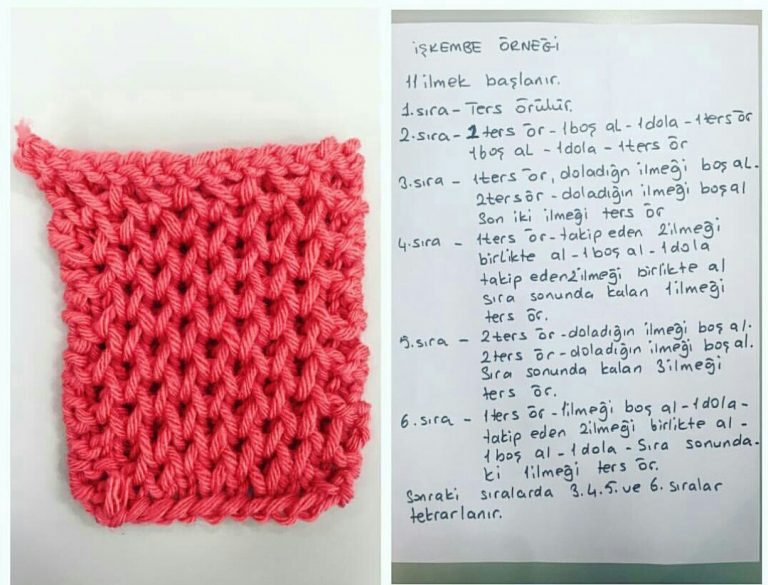 İŞKEMBE ÖRNEĞİ
11 ilmek başlanır.
1.sıra - Ters örülür.
2.sıra - 1 ters ör - 1 boş al - 1 dola - 1 ters ör
1 boş al - 1 dola - 1 ters ör
3.sıra - 1 ters ör, doladığın ilmeği boş al.
2 ters ör - doladığın ilmeği boş al
Son iki ilmeği ters ör
4.sıra - 1 ters ör - takip eden 2 ilmeği
birlikte al - 1 boş al - 1 dola
takip eden 2 ilmeği birlikte al
sıra sonunda kalan 1 ilmeği
ters ör.
5.sıra - 2 ters ör - doladığın ilmeği boş al.
2 ters ör - doladığın ilmeği boş al.
Sıra sonunda kalan 3 ilmeği
ters ör.
6.sıra - 1 ters ör - 1 ilmeği boş al - 1 dola -
takip eden 2 ilmeği birlikte al -
1 boş al - 1 dola - Sıra sonunda-
ki 1 ilmeği ters ör.
Sonraki sıralarda 3.4.5. ve 6. sıralar
tekrarlanır.